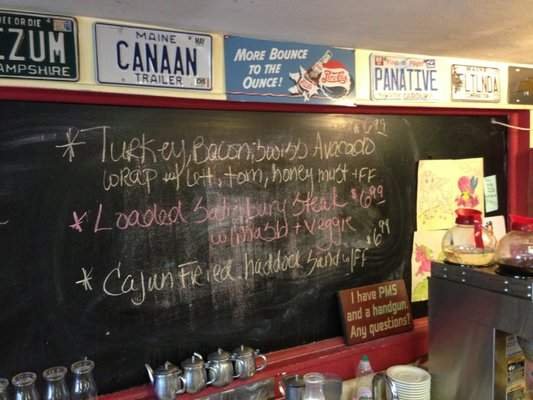 EZUM
MAINE
CANAAN
TRAILER
MORE BOUNCE
TO THE
OUNCE!
PANATIVE
LILNDA
* Turkey, Bacon, Swiss Avocado $6.99
wrap w/ Lett, tom, honey must + FF
* Loaded Salisbury Steak $6.99
w/ mash'd + veggie
* Cajun Fried haddock Sand w/ FF $6.99
I have PMS
and a handgun.
Any questions?